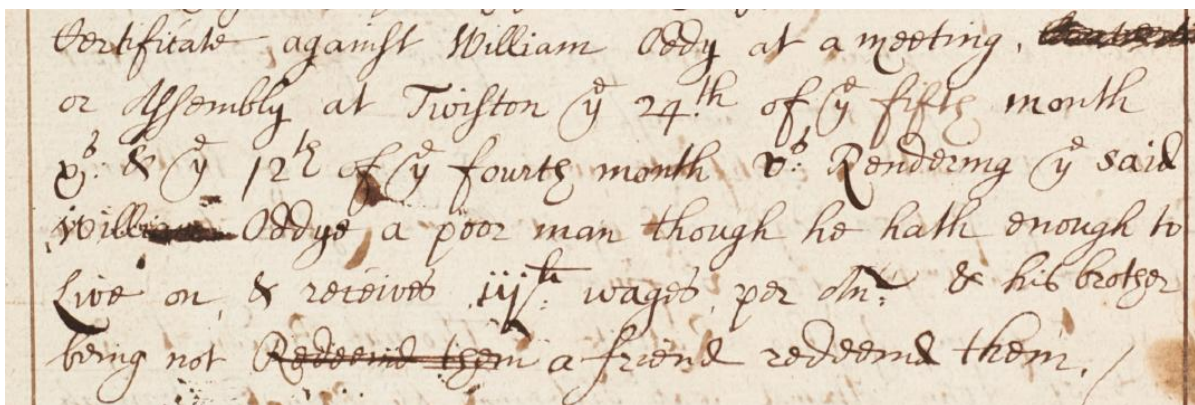 Certificate against William Oddy at a meeting,
or Assembly at Twiston yͤ 24.th of yͤ fifth month
vs: & yͤ 12th of yͤ fourth month vs: Rendering yͤ said
William Oddye a poor man though he hath enough to
Live on, & receives iijli: wages per An: & his brother
being not Redeemd them a friend redeemd them.